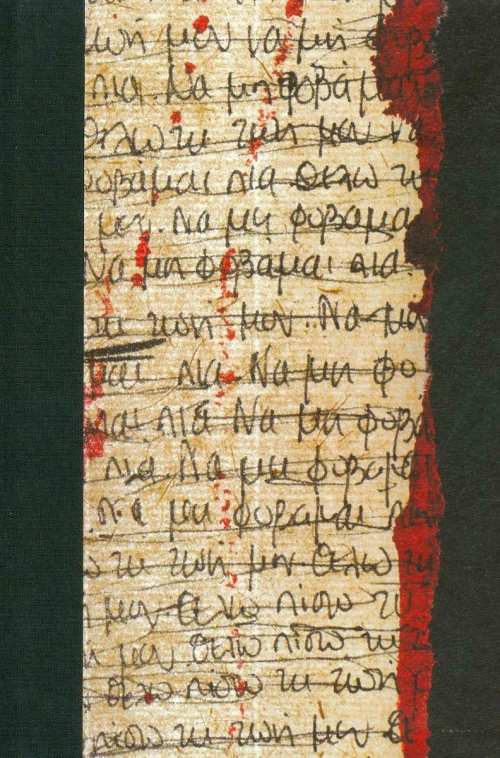 ζωή μου να μη φοβά
πια. Να μη φοβάμαι
θέλω τη ζωή μου να
φοβάμαι πια θέλω τη
μου. Να μη φοβάμαι
Να μη φοβάμαι πια.
τη ζωή μου. Να μη
μαι πια Να μη φο
μαι πιά Να μη φοβά
πια Να μη φοβάμαι
Να μη φοβάμαι πια
ω τη ζωή μου θέλω τη
η μου θέλω πίσω τη
η μου θέλω πίσω τη
θέλω πίσω τη ζωή μ
πίσω τη ζωή μου θε